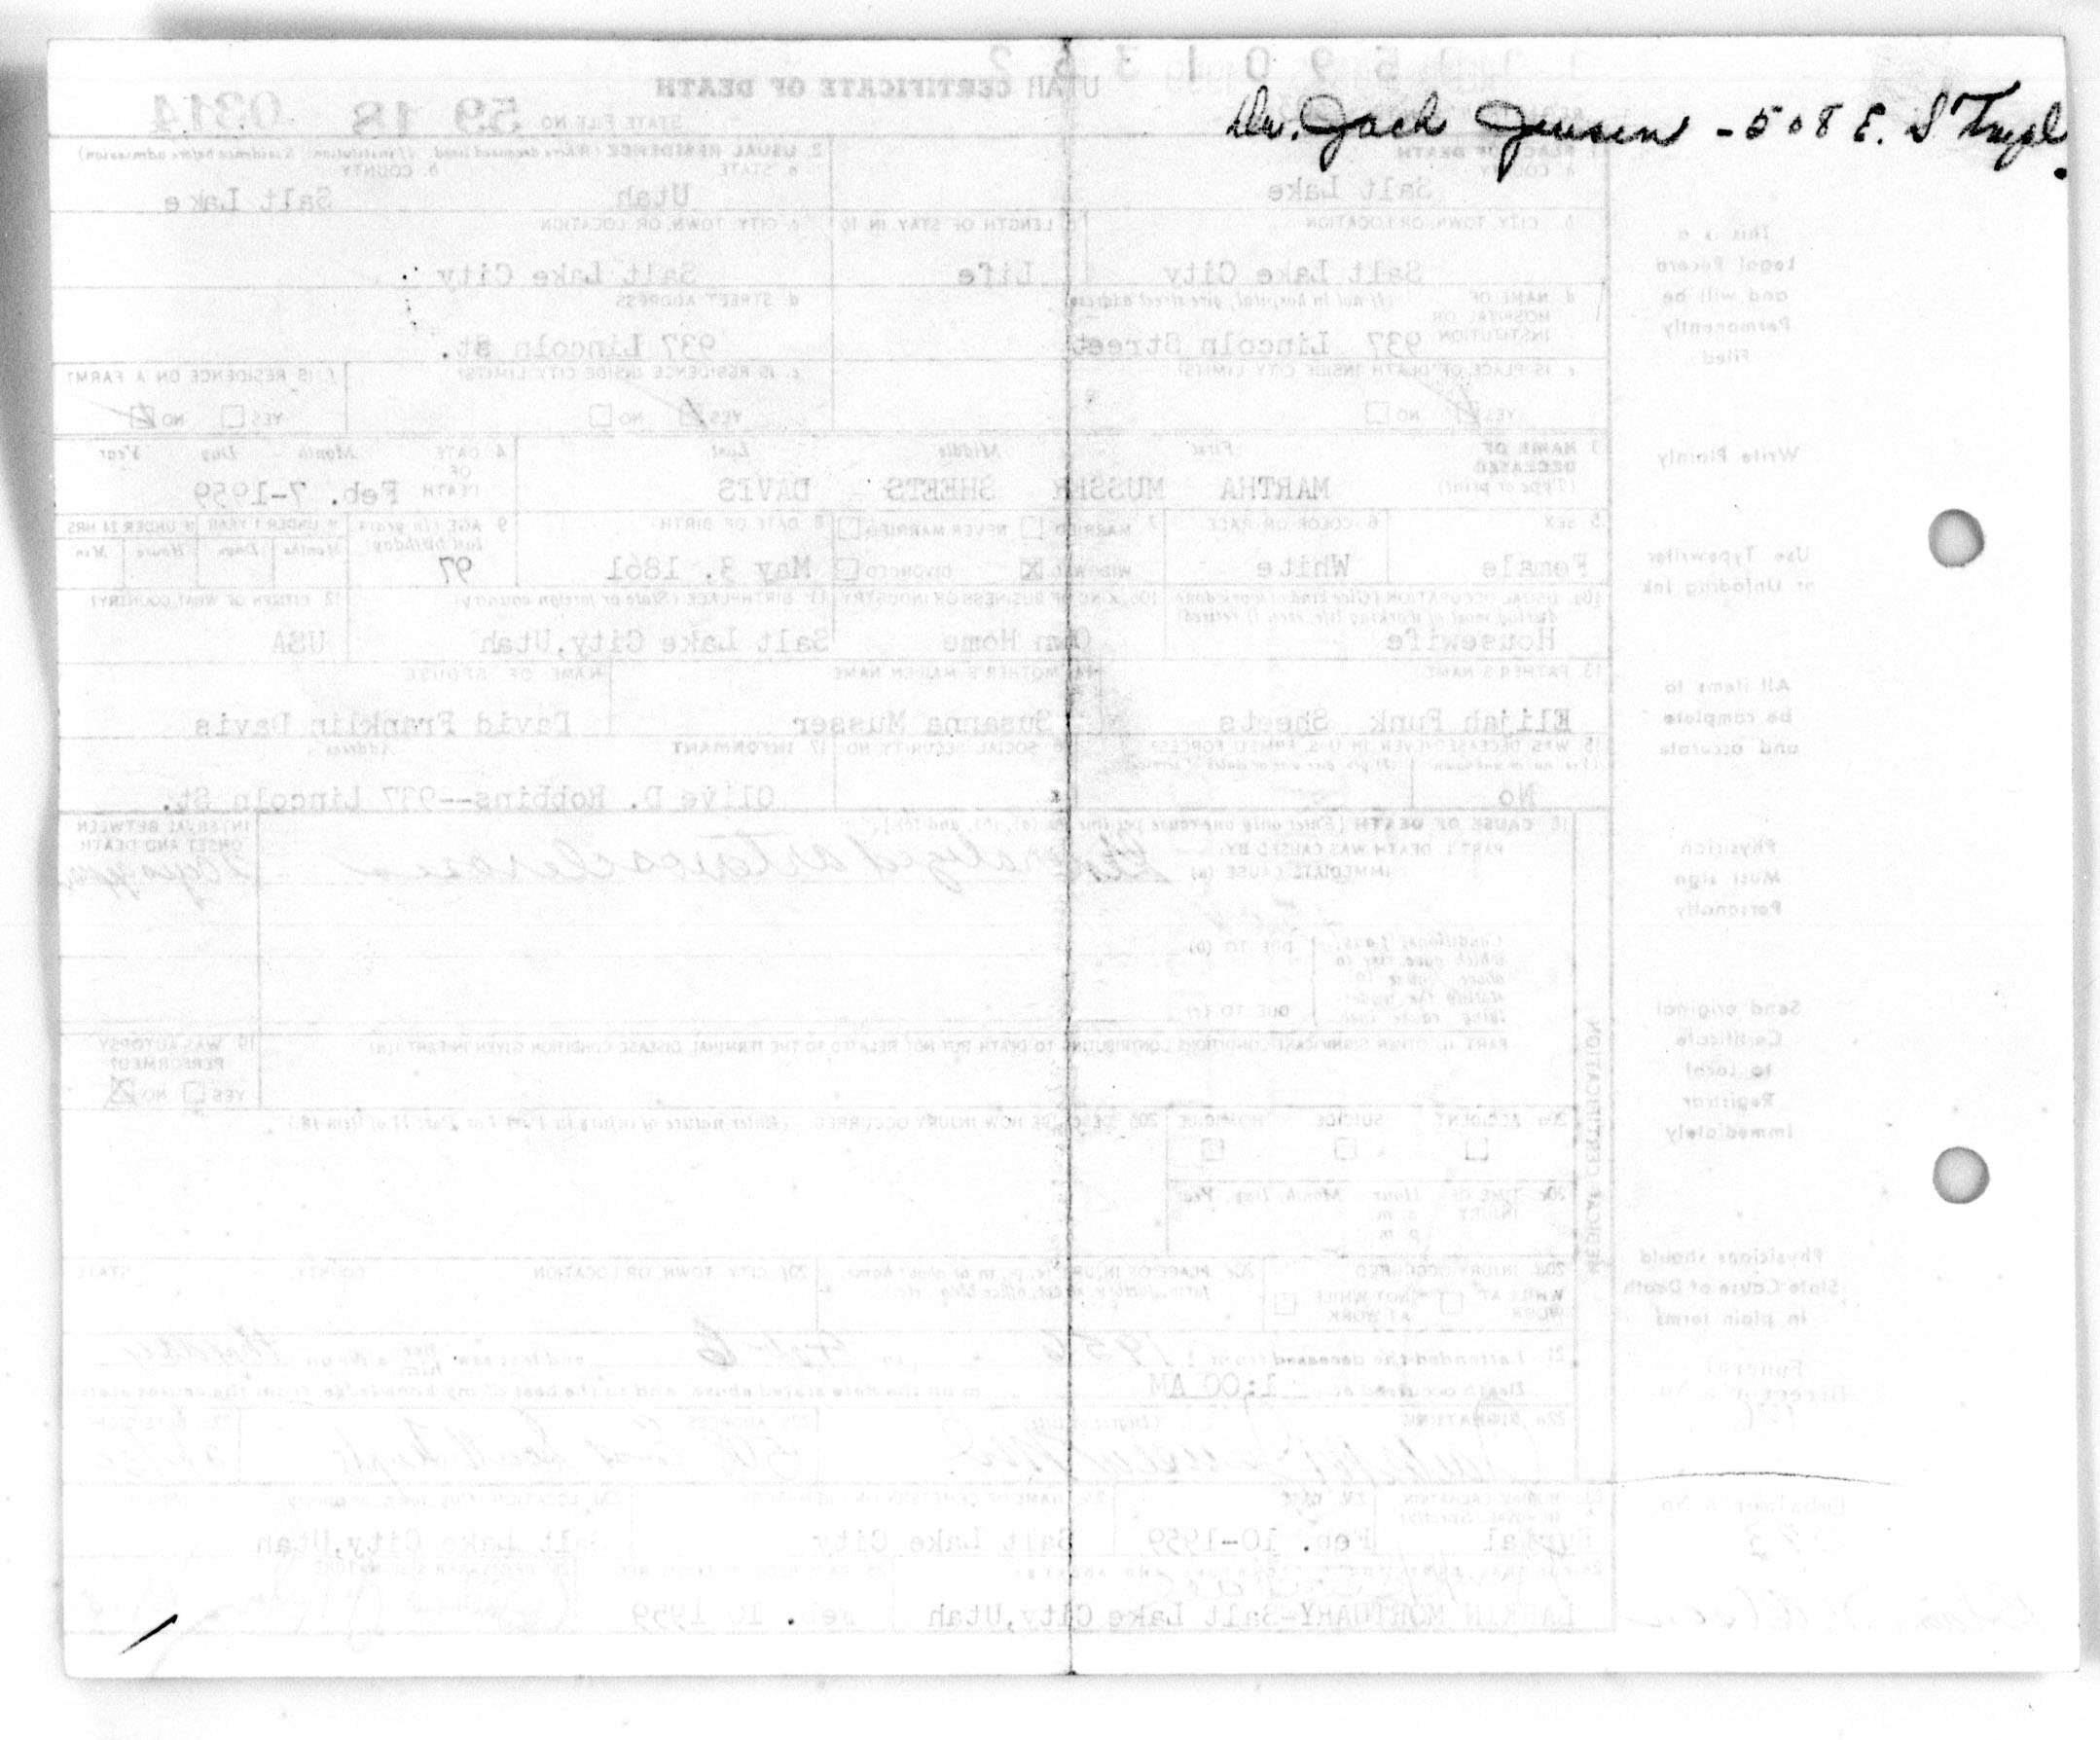 Dr. Jack Jensen - 508 E. S Templ.
UTAH CERTIFICATE OF DEATH
STATE FILE NO. 59 18 0314
1. PLACE OF DEATH
a. COUNTY
Salt Lake
2. USUAL RESIDENCE (Where deceased lived. If institution: Residence before admission)
a. STATE
Utah
b. COUNTY
Salt Lake
b. CITY, TOWN, OR LOCATION
Salt Lake City
c. LENGTH OF STAY IN 1b
Life
c. CITY, TOWN, OR LOCATION
Salt Lake City
d. NAME OF HOSPITAL OR INSTITUTION (If not in hospital, give street address)
937 Lincoln Street
d. STREET ADDRESS
937 Lincoln St.
e. IS PLACE OF DEATH INSIDE CITY LIMITS?
YES NO
e. IS RESIDENCE INSIDE CITY LIMITS?
YES NO
f. IS RESIDENCE ON A FARM?
YES NO
3. NAME OF DECEASED (Type or print)
First Middle Last
MARTHA MUSSER SHEETS DAVIS
4. DATE OF DEATH Month Day Year
Feb. 7-1959
5. SEX
Female
6. COLOR OR RACE
White
7. MARRIED NEVER MARRIED
WIDOWED DIVORCED
8. DATE OF BIRTH
May 3, 1861
9. AGE (In years last birthday)
97
IF UNDER 1 YEAR IF UNDER 24 HRS
Months Days Hours Min
10a. USUAL OCCUPATION (Give kind of work done during most of working life, even if retired)
Housewife
10b. KIND OF BUSINESS OR INDUSTRY
Own Home
11. BIRTHPLACE (State or foreign country)
Salt Lake City,Utah
12. CITIZEN OF WHAT COUNTRY?
USA
13. FATHER'S NAME
Elijah Funk Sheets
14. MOTHER'S MAIDEN NAME
Susanna Musser
NAME OF SPOUSE
David Franklin Davis
15. WAS DECEASED EVER IN U.S. ARMED FORCES?
No
16. SOCIAL SECURITY NO.
17. INFORMANT Address
Olive D. Robbins--937 Lincoln St.
18. CAUSE OF DEATH [Enter only one cause per line for (a), (b), and (c).]
PART I. DEATH WAS CAUSED BY:
IMMEDIATE CAUSE (a) Generalized arteriosclerosis
INTERVAL BETWEEN ONSET AND DEATH
DUE TO (b)
DUE TO (c)
PART II. OTHER SIGNIFICANT CONDITIONS CONTRIBUTING TO DEATH BUT NOT RELATED TO THE TERMINAL DISEASE CONDITION GIVEN IN PART I (a)
19. WAS AUTOPSY PERFORMED?
YES NO
20a. ACCIDENT SUICIDE HOMICIDE
20b. DESCRIBE HOW INJURY OCCURRED. (Enter nature of injury in Part I or Part II of item 18.)
20c. TIME OF INJURY Hour Month, Day, Year
a.m.
p.m.
20d. INJURY OCCURRED
WHILE AT WORK NOT WHILE AT WORK
20e. PLACE OF INJURY (e.g., in or about home, farm, factory, street, office bldg., etc.)
20f. CITY, TOWN, OR LOCATION COUNTY STATE
21. I attended the deceased from 1956 to Feb 6 and last saw her him alive on
Death occurred at 1:00 AM m on the date stated above, and to the best of my knowledge, from the causes stated.
22a. SIGNATURE (Degree or title)
22b. ADDRESS
508 East South Temple
22c. DATE SIGNED
Burial
Feb. 10-1959
Salt Lake City
Salt Lake City,Utah
LARKIN MORTUARY-Salt Lake City,Utah
Feb. 10 1959
MEDICAL CERTIFICATION
This is a
Legal Record
and will be
Permanently
Filed
Write Plainly
Use Typewriter
or Unfading Ink
All items to
be complete
and accurate
Physician
Must sign
Personally
Send original
Certificate
to Local
Registrar
Immediately
Physicians should
State Cause of Death
in plain terms
Funeral
Director's No.
Embalmer's No.